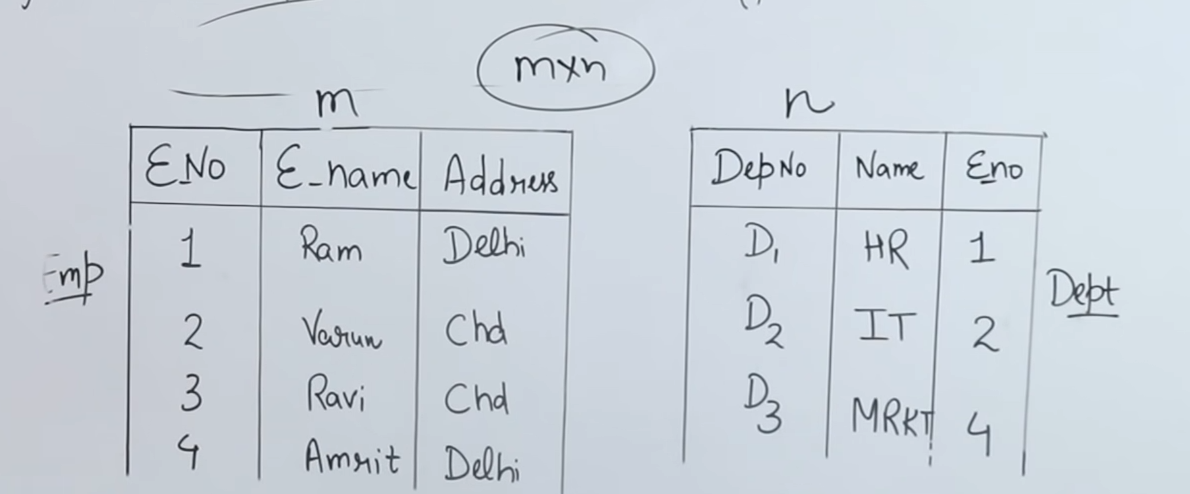 mxn
m
n
E_No E_name Address
1 Ram Delhi
2 Varun Chd
3 Ravi Chd
4 Amrit Delhi
Emp
DepNo Name Eno
D1 HR 1
D2 IT 2
D3 MRKT 4
Dept